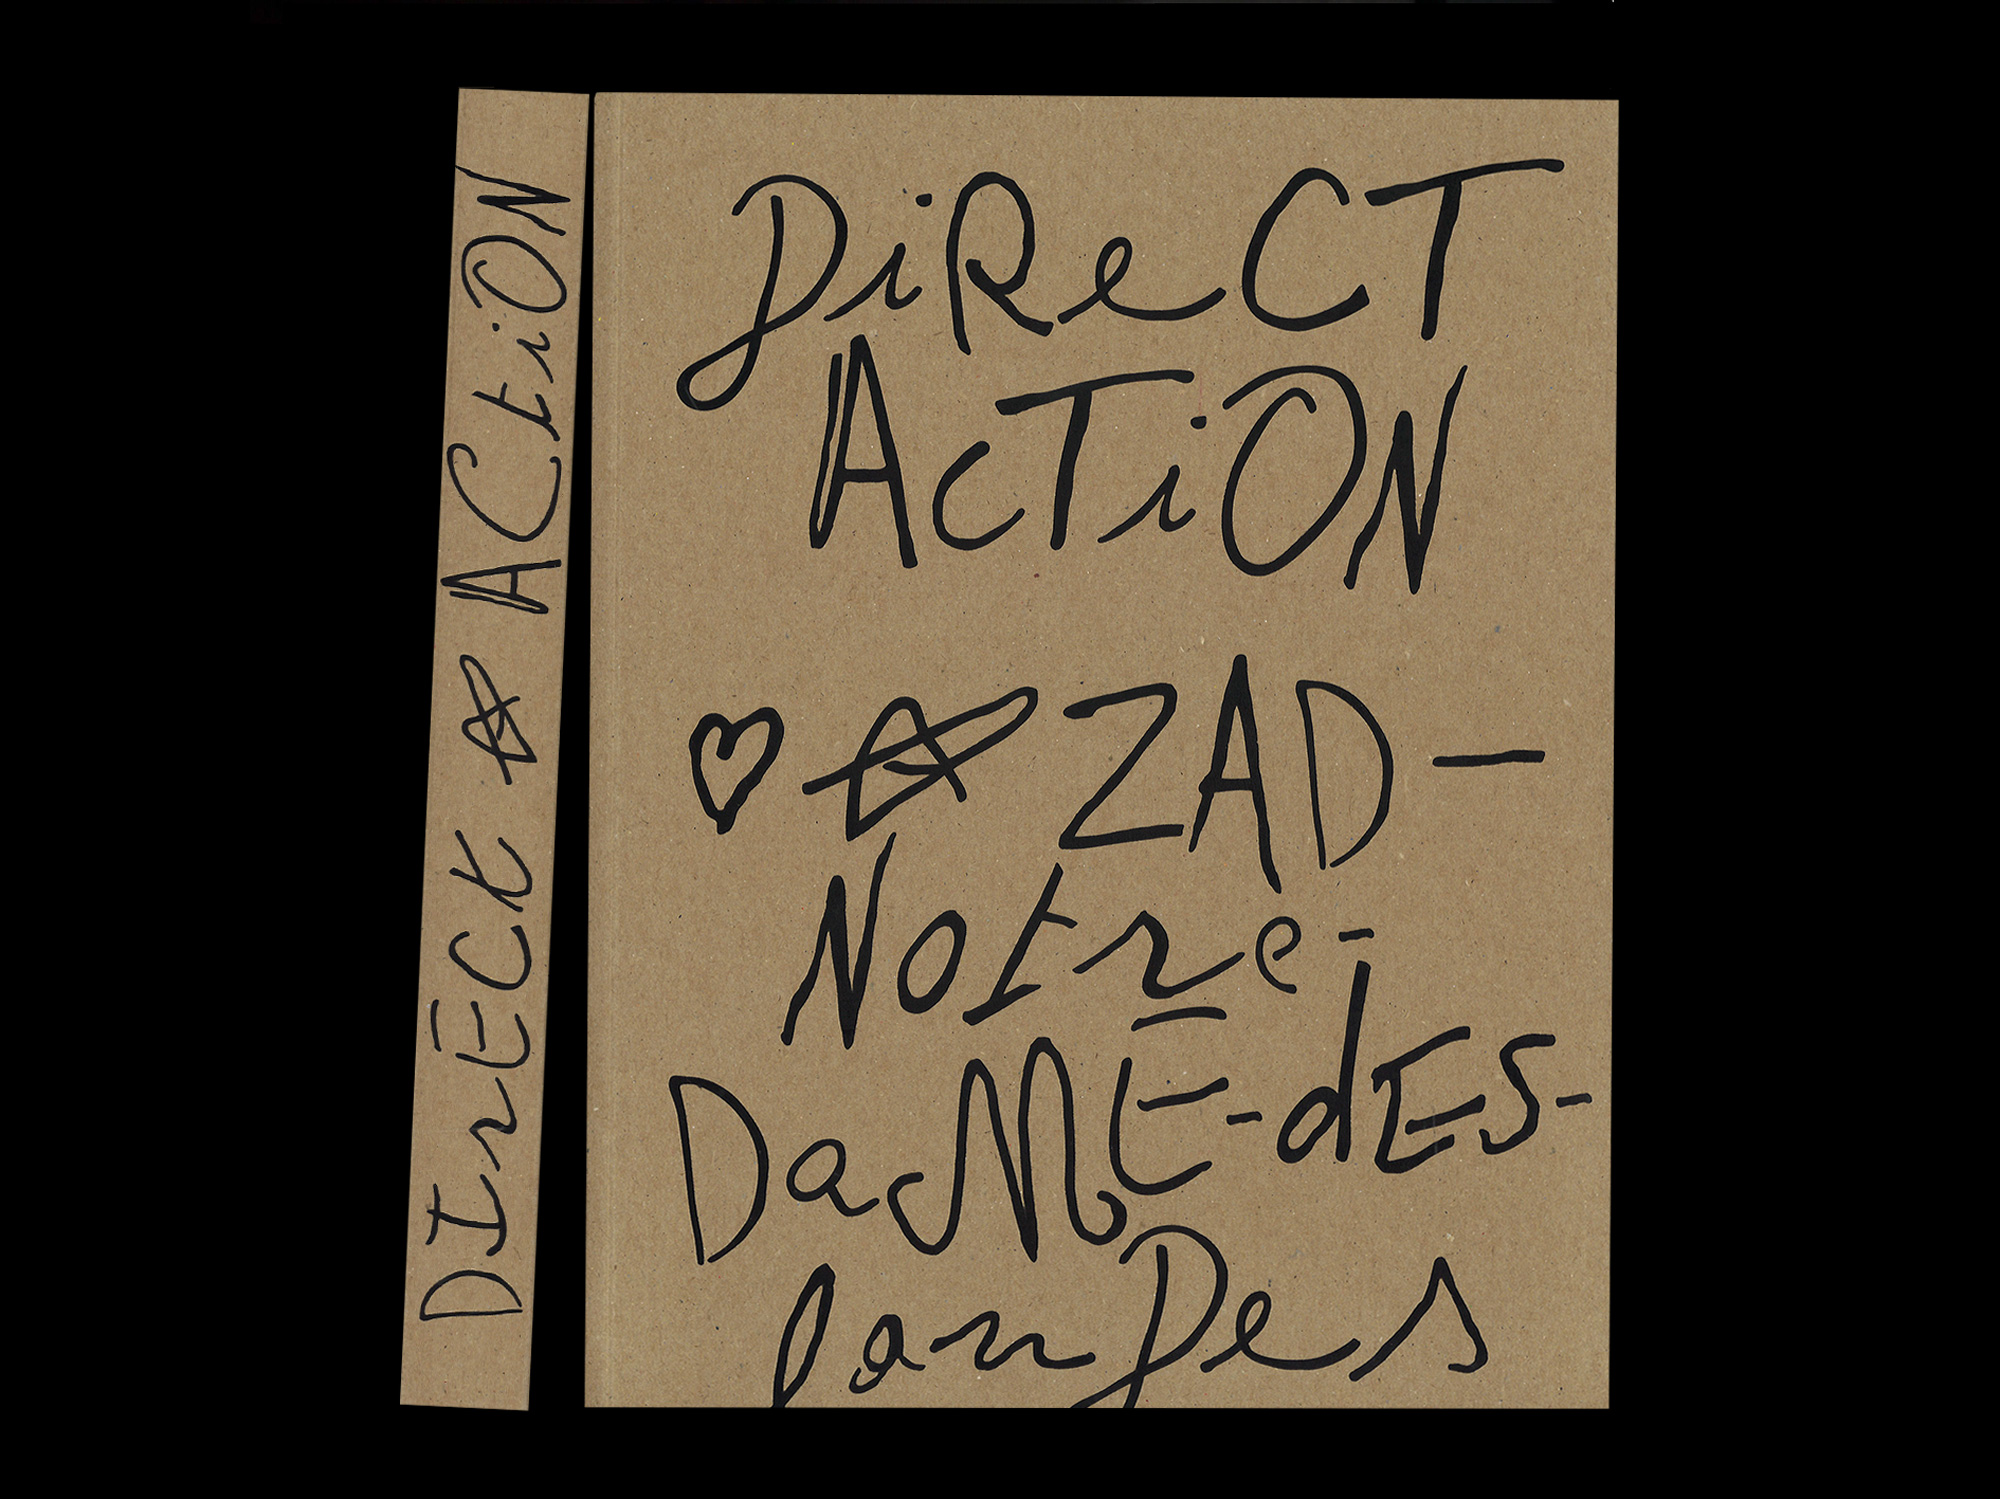 DIrECK ☆ ACtiON
DiReCT
AcTiON
♡ ☆ ZAD -
Notre-
DaME-dES-
lanDes